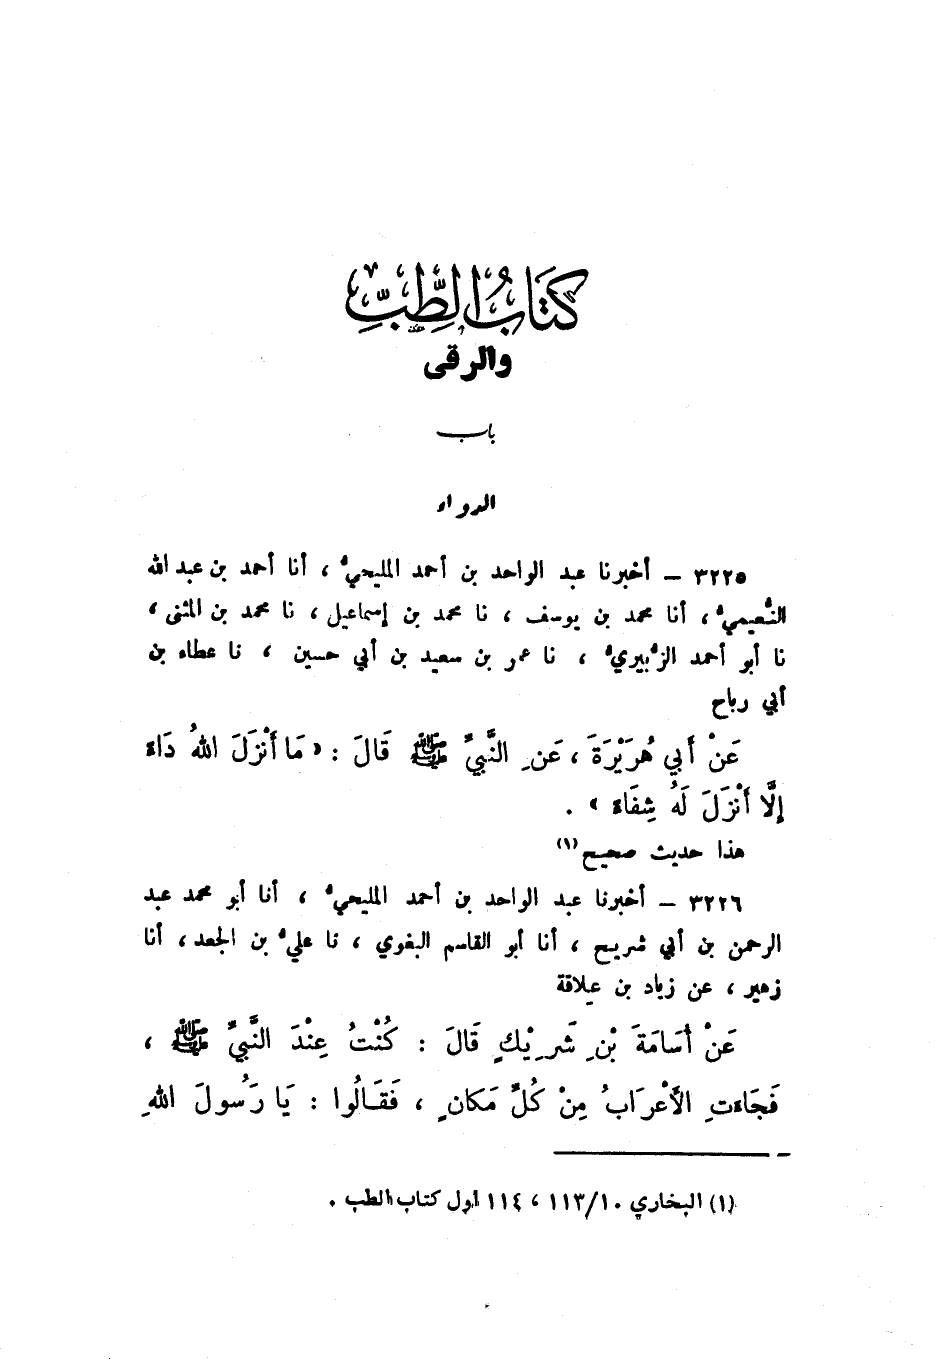 كِتَابُ الطِّبِّ
والرقى
باب
الدواء
٣٢٢٥ – أخبرنا عبد الواحد بن أحمد المليحيُّ ، أنا أحمد بن عبد الله
النُّعيميُّ ، أنا محمد بن يوسف ، نا محمد بن إسماعيل ، نا محمد بن المثنى ،
نا أبو أحمد الزُّبيريُّ ، نا عمر بن سعيد بن أبي حسين ، نا عطاء بن
أبي رباح
عَنْ أَبِي هُرَيْرَةَ ، عَنِ النَّبِيِّ ﷺ قَالَ : « مَا أَنْزَلَ اللهُ دَاءً
إِلَّا أَنْزَلَ لَهُ شِفَاءً » .
هذا حديث صحيح (١)
٣٢٢٦ – أخبرنا عبد الواحد بن أحمد المليحيُّ ، أنا أبو محمد عبد
الرحمن بن أبي شريح ، أنا أبو القاسم البغوي ، نا عليُّ بن الجعد ، أنا
زهير ، عن زياد بن علاقة
عَنْ أُسَامَةَ بْنِ شَرِيْكٍ قَالَ : كُنْتُ عِنْدَ النَّبِيِّ ﷺ ،
فَجَاءَتِ الأَعْرَابُ مِنْ كُلِّ مَكَانٍ ، فَقَالُوا : يَا رَسُولَ اللهِ
(١) البخاري ١١٣/١٠ ، ١١٤ أول كتاب الطب .